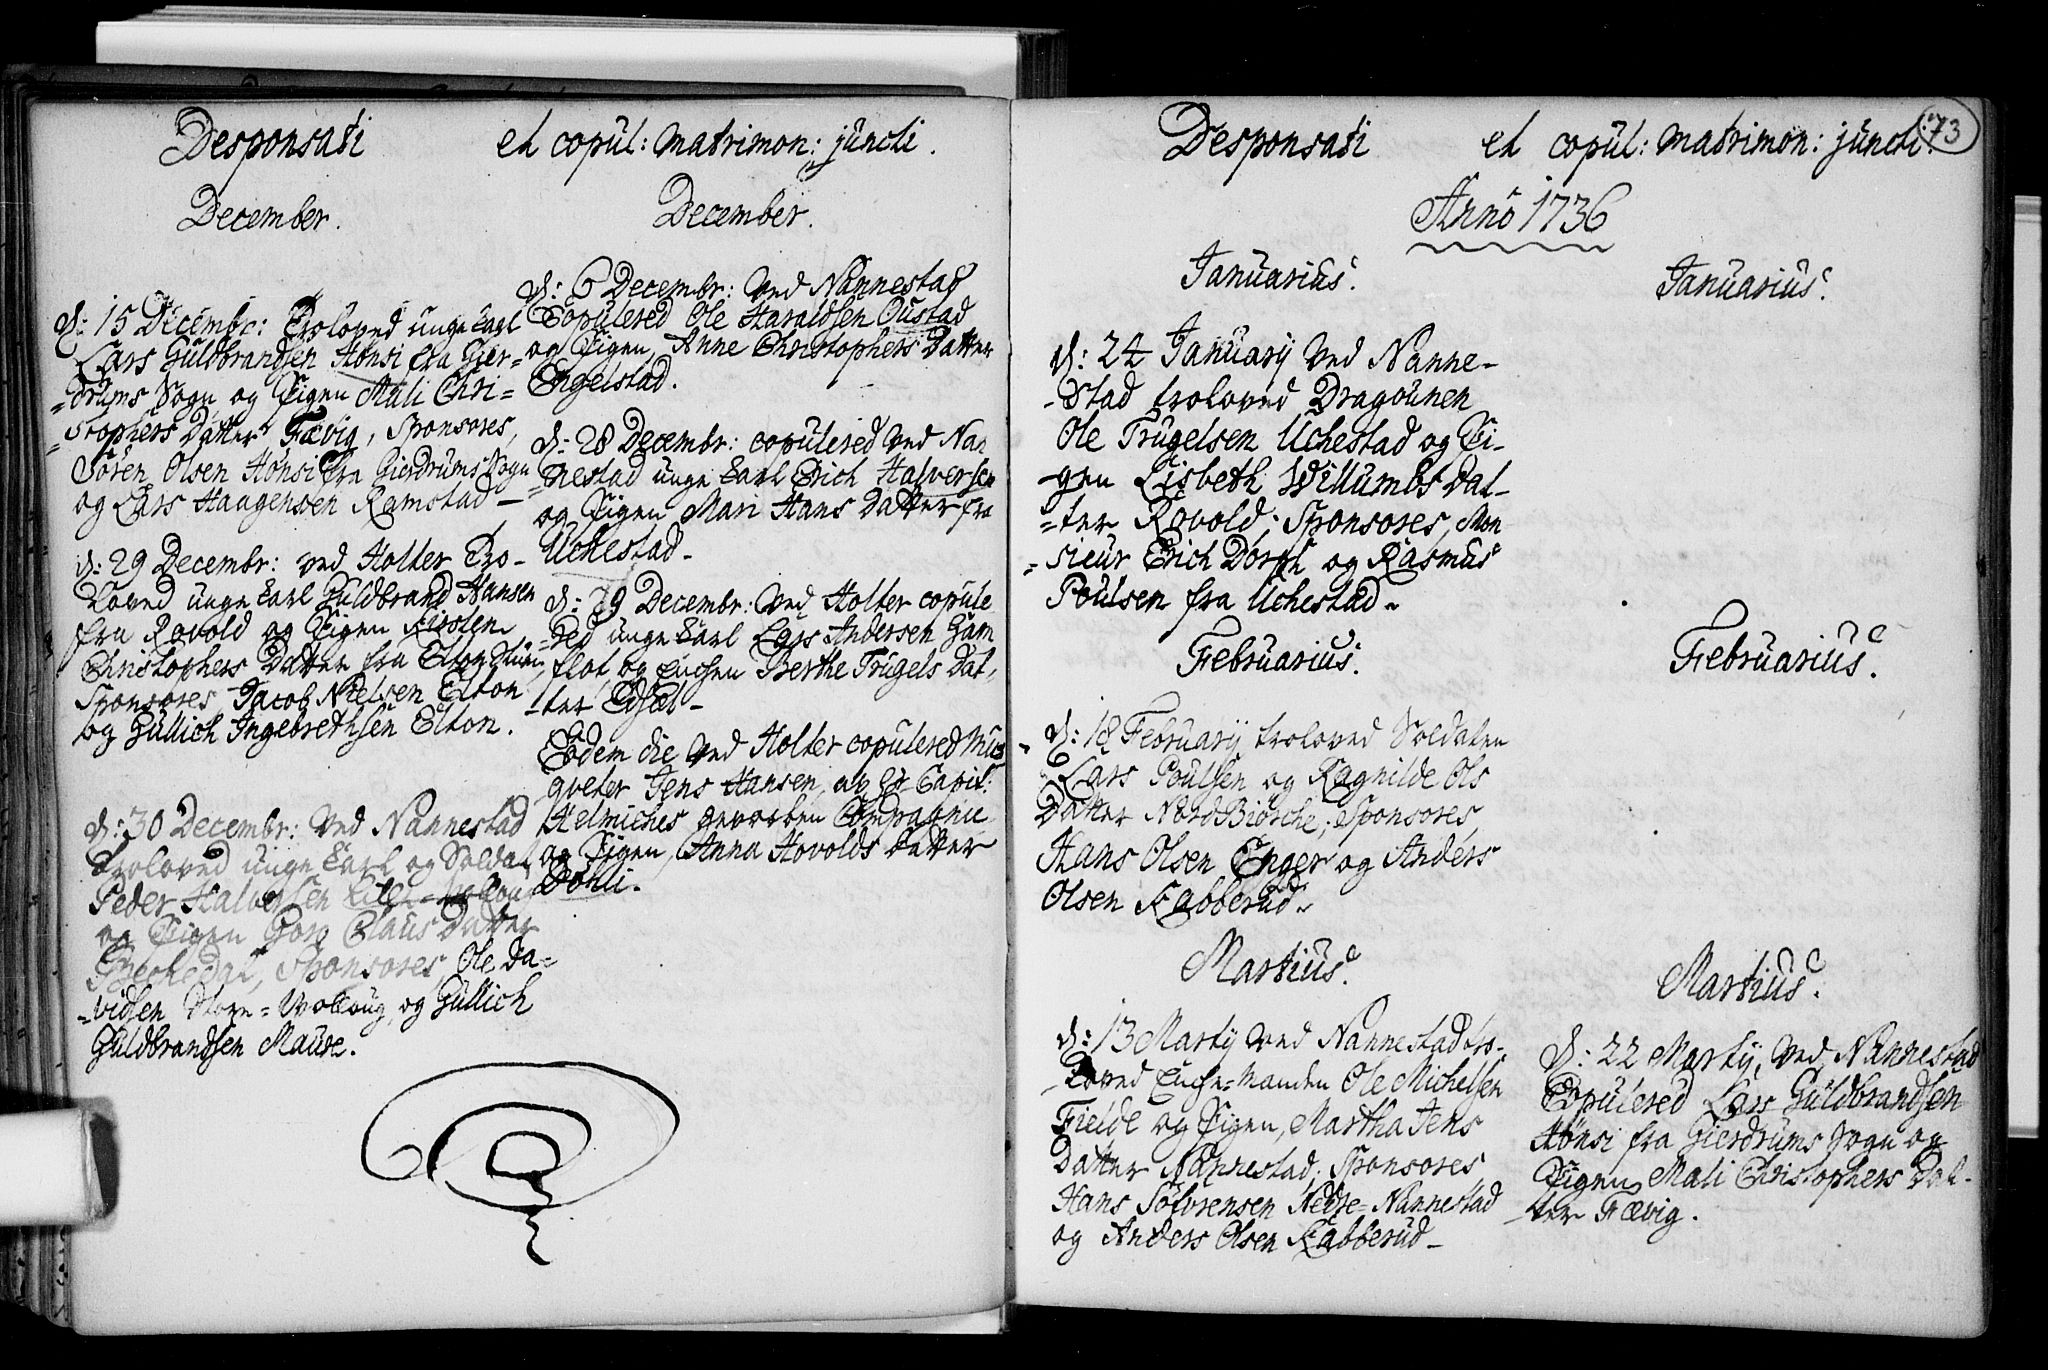 Desponsati et copul: matrimon: juncti.
December.
d: 15 Decembr: Troloved unge Karl
Lars Guldbrandsen Hønsi fra Gier-
=drums Sogn og Pigen Mali Chri=
=stophers Datter Fævig, Sponsores,
Søren Olsen Hønsi fra Gierdrums Sogn
og Lars Haagensen Ramstad –
d: 29 Decembr: ved Holter Tro-
loved unge Karl Guldbrand Hansen
fra Rovold og Pigen Kirsten
Christophers Datter fra Elton
Sponsores Jacob Nielsen Elton
og Gullich Ingebrethsen Elton.
d: 30 Decembr: ved Nannestad
Troloved unge Karl og Soldat
Peder Halversen
og Pigen Goro Claus Datter
Bechedal, Sponsores, Ole Da=
=vidsen Store=Wolloug, og Gullich
Guldbrandsen Maure.
December.
d: 6 Decembr: ved Nannestad
Copulered Ole Haraldsen Oustad
og Pigen, Anne Christophers Datter
Engelstad.
d: 28 Decembr: copulered ved Nan
=nestad unge Karl Erich Halversen
og Pigen Mari Hans Datter fra
Uchestad –
d: 29 Decembr: ved Holter copule
=red unge Karl Lars Andersen Gam
flot og Enchen Berthe Trugels Dat,
-ter Edsæl –
Eodem die ved Holter copulered Mus
qveter Jens Hansen, af Hr Capit:
Helmiches gevorben Compagnie
og Pigen, Anna Hovolds Datter
Dohli.
73
Desponsati et copul: matrimon: juncti.
Anno 1736
Januarius.
d: 24 Januarij ved Nanne-
-stad troloved Dragounen
Ole Trugelsen Uchestad og Pi-
-gen Lisbeth Willumbs Dat-
=ter Rovold; Sponsores, Mon
=sieur Erich Dorph og Rasmus
Poulsen fra Uchestad –
Februarius.
d: 18 Februarij troloved Soldaten
Lars Poulsen og Ragnilde Ols
Datter NordBiørche; Sponsores,
Hans Olsen Enger og Anders
Olsen Kabberud –
Martius.
d: 13 Martij ved Nannestad tro-
-loved Enche=Manden Ole Michelsen
Fielde og Pigen, Martha Jens
Datter Nannestad; Sponsores
Hans Sofvrensen Nedre=Nannestad
og Anders Olsen Kabberud –
Januarius.
Februarius.
Martius.
d: 22 Martij, ved Nannestad
Copulered Lars Guldbrandsen
Hønsi fra Gierdrums Sogn og
Pigen Mali Christophers Dat-
-ter Fævig.